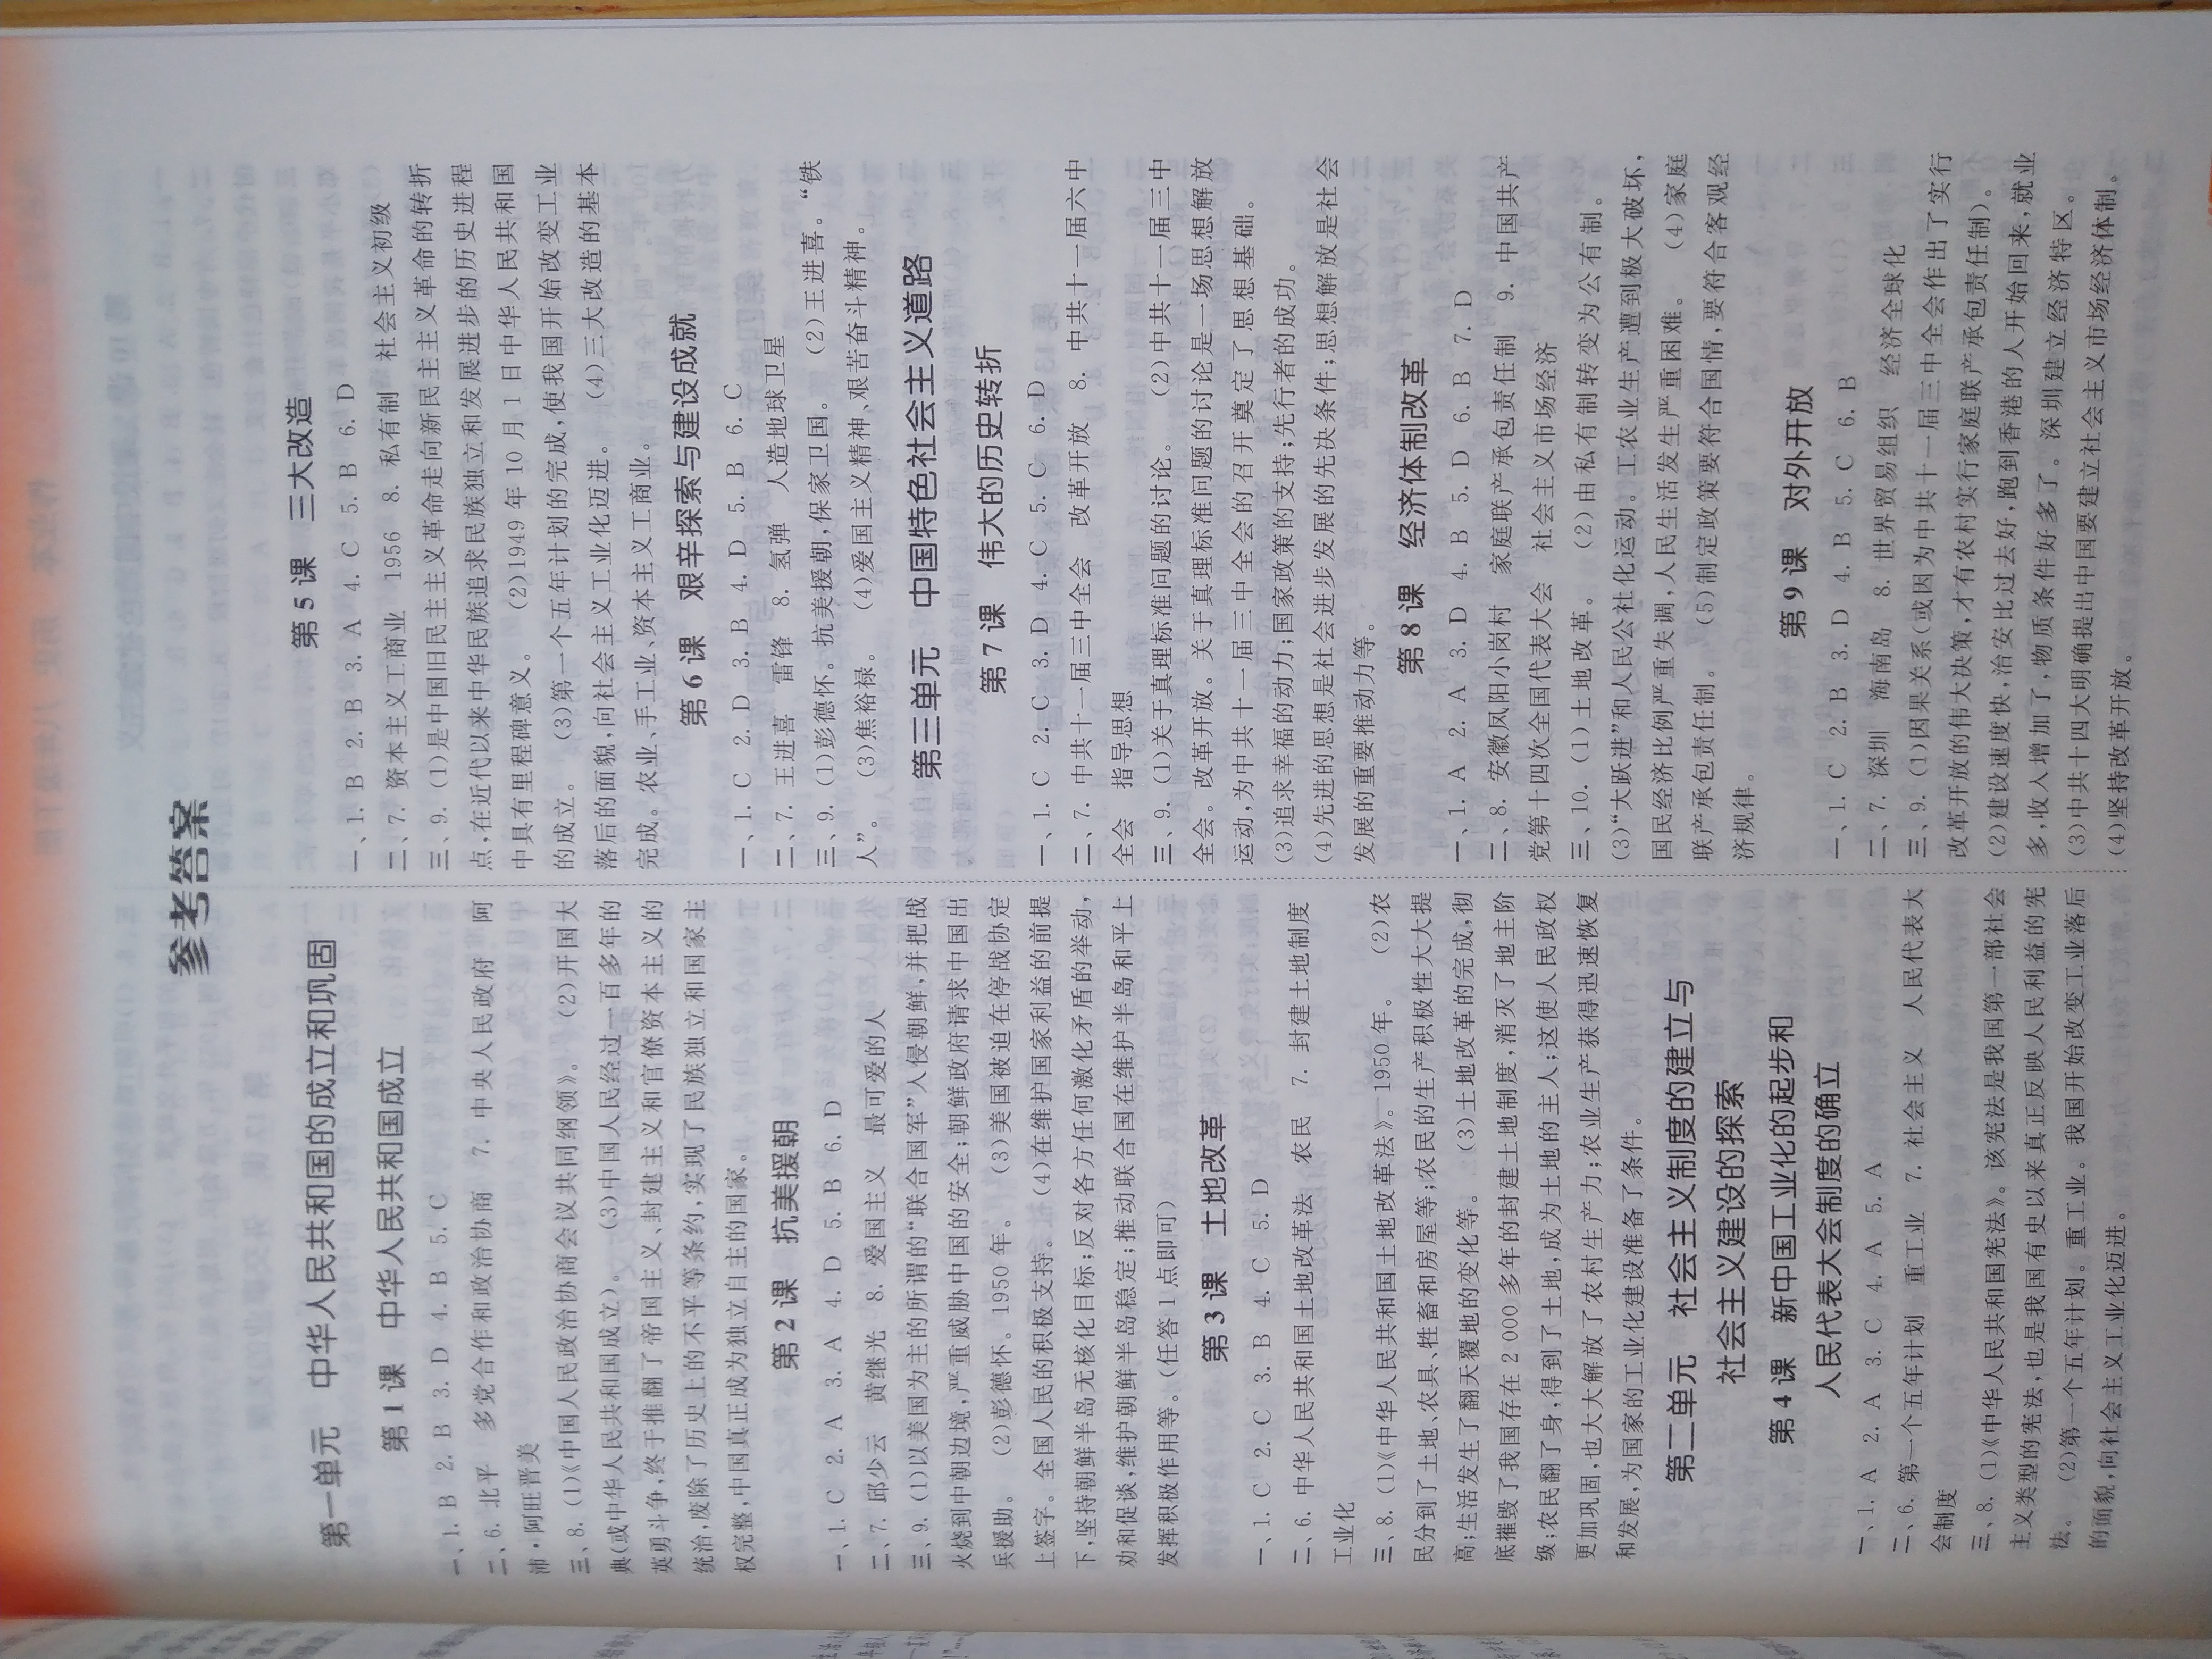 参考答案
第一单元 中华人民共和国的成立和巩固
第 1 课 中华人民共和国成立
一、1. B 2. B 3. D 4. B 5. C
二、6. 北平 多党合作和政治协商 7. 中央人民政府 阿
沛·阿旺晋美
三、8. (1)《中国人民政治协商会议共同纲领》。 (2)开国大
典(或中华人民共和国成立)。 (3)中国人民经过一百多年的
英勇斗争,终于推翻了帝国主义、封建主义和官僚资本主义的
统治,废除了历史上的不平等条约,实现了民族独立和国家主
权完整,中国真正成为独立自主的国家。
第 2 课 抗美援朝
一、1. C 2. A 3. A 4. D 5. B 6. D
二、7. 邱少云 黄继光 8. 爱国主义 最可爱的人
三、9. (1)以美国为主的所谓的“联合国军”入侵朝鲜,并把战
火烧到中朝边境,严重威胁中国的安全;朝鲜政府请求中国出
兵援助。 (2)彭德怀。1950 年。 (3)美国被迫在停战协定
上签字。全国人民的积极支持。 (4)在维护国家利益的前提
下,坚持朝鲜半岛无核化目标;反对各方任何激化矛盾的举动,
劝和促谈,维护朝鲜半岛稳定;推动联合国在维护半岛和平上
发挥积极作用等。(任答 1 点即可)
第 3 课 土地改革
一、1. C 2. C 3. B 4. C 5. D
二、6. 中华人民共和国土地改革法 农民 7. 封建土地制度
工业化
三、8. (1)《中华人民共和国土地改革法》。1950 年。 (2)农
民分到了土地、农具、牲畜和房屋等;农民的生产积极性大大提
高;生活发生了翻天覆地的变化等。 (3)土地改革的完成,彻
底摧毁了我国存在 2 000 多年的封建土地制度,消灭了地主阶
级;农民翻了身,得到了土地,成为土地的主人;这使人民政权
更加巩固,也大大解放了农村生产力;农业生产获得迅速恢复
和发展,为国家的工业化建设准备了条件。
第二单元 社会主义制度的建立与
社会主义建设的探索
第 4 课 新中国工业化的起步和
人民代表大会制度的确立
一、1. A 2. A 3. C 4. A 5. A
二、6. 第一个五年计划 重工业 7. 社会主义 人民代表大
会制度
三、8. (1)《中华人民共和国宪法》。该宪法是我国第一部社会
主义类型的宪法,也是我国有史以来真正反映人民利益的宪
法。 (2)第一个五年计划。重工业。我国开始改变工业落后
的面貌,向社会主义工业化迈进。
第 5 课 三大改造
一、1. B 2. B 3. A 4. C 5. B 6. D
二、7. 资本主义工商业 1956 8. 私有制 社会主义初级
三、9. (1)是中国旧民主主义革命走向新民主主义革命的转折
点,在近代以来中华民族追求民族独立和发展进步的历史进程
中具有里程碑意义。 (2)1949 年 10 月 1 日中华人民共和国
的成立。 (3)第一个五年计划的完成,使我国开始改变工业
落后的面貌,向社会主义工业化迈进。 (4)三大改造的基本
完成。农业、手工业、资本主义工商业。
第 6 课 艰辛探索与建设成就
一、1. C 2. D 3. B 4. D 5. B 6. C
二、7. 王进喜 雷锋 8. 氢弹 人造地球卫星
三、9. (1)彭德怀。抗美援朝,保家卫国。 (2)王进喜。“铁
人”。 (3)焦裕禄。 (4)爱国主义精神、艰苦奋斗精神。
第三单元 中国特色社会主义道路
第 7 课 伟大的历史转折
一、1. C 2. C 3. D 4. C 5. C 6. D
二、7. 中共十一届三中全会 改革开放 8. 中共十一届六中
全会 指导思想
三、9. (1)关于真理标准问题的讨论。 (2)中共十一届三中
全会。改革开放。关于真理标准问题的讨论是一场思想解放
运动,为中共十一届三中全会的召开奠定了思想基础。
(3)追求幸福的动力;国家政策的支持;先行者的成功。
(4)先进的思想是社会进步发展的先决条件;思想解放是社会
发展的重要推动力等。
第 8 课 经济体制改革
一、1. A 2. A 3. D 4. B 5. D 6. B 7. D
二、8. 安徽凤阳小岗村 家庭联产承包责任制 9. 中国共产
党第十四次全国代表大会 社会主义市场经济
三、10. (1)土地改革。 (2)由私有制转变为公有制。
(3)“大跃进”和人民公社化运动。工农业生产遭到极大破坏,
国民经济比例严重失调,人民生活发生严重困难。 (4)家庭
联产承包责任制。 (5)制定政策要符合国情,要符合客观经
济规律。
第 9 课 对外开放
一、1. C 2. B 3. D 4. B 5. C 6. B
二、7. 深圳 海南岛 8. 世界贸易组织 经济全球化
三、9. (1)因果关系(或因为中共十一届三中全会作出了实行
改革开放的伟大决策,才有农村实行家庭联产承包责任制)。
(2)建设速度快,治安比过去好,跑到香港的人开始回来,就业
多,收入增加了,物质条件好多了。深圳建立经济特区。
(3)中共十四大明确提出中国要建立社会主义市场经济体制。
(4)坚持改革开放。